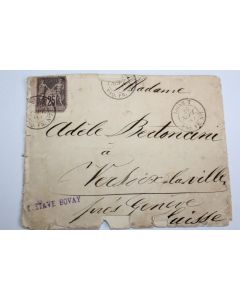 25
Madame
Adèle Bertoncini
à
Versoix-la-ville
près Genève
Suisse
GUSTAVE BOVAY